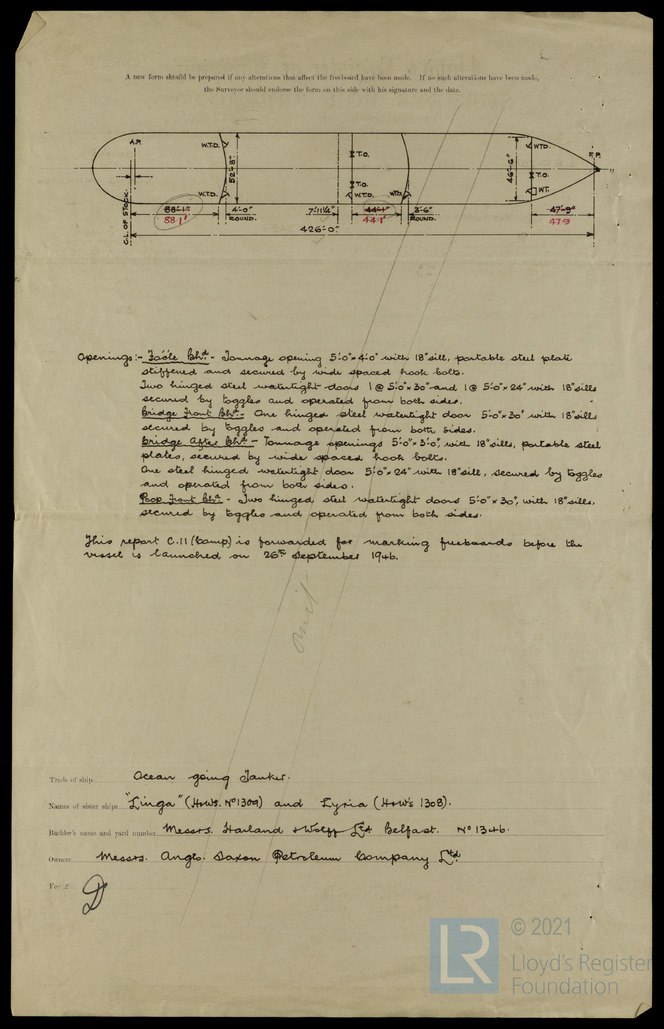 A new form should be prepared if any alterations that affect the freeboard have been made. If no such alterations have been made,
the Surveyor should endorse the form on this side with his signature and the date.
A.P. W.T.D. 52'-8" T.O. 46'-6" W.T.D. F.P.
T.O. T.O.
W.T.D. W.T.D. W.T.D. W.T.
C.L. OF STOCK. 88'-1" 4'-0" 7'-11¼" 44'-1" 3'-6" 47'-9"
88.1' ROUND. 44.1' ROUND. 47.9
426'-0"
Openings:- Fo'cle Bhd - Tonnage opening 5'-0" × 4'-0" with 18" sill, portable steel plate
stiffened and secured by wide spaced hook bolts.
Two hinged steel watertight doors 1 @ 5'-0" × 30" and 1 @ 5'-0" × 24" with 18" sills
secured by toggles and operated from both sides.
Bridge Front Bhd - One hinged steel watertight door 5'-0" × 30" with 18" sills
secured by toggles and operated from both sides.
Bridge After Bhd - Tonnage openings 5'-0" × 3'-0", with 18" sills, portable steel
plates, secured by wide spaced hook bolts.
One steel hinged watertight door 5'-0" × 24" with 18" sill, secured by toggles
and operated from both sides.
Poop Front Bhd - Two hinged steel watertight doors 5'-0" × 30", with 18" sills,
secured by toggles and operated from both sides.
This report C.11 (Comp) is forwarded for marking freeboards before the
vessel is launched on 26th September 1946.
omit
Trade of ship Ocean going Tanker.
Names of sister ships "Linga" (H&W's. No 1309) and Lyria (H&W's 1308).
Builder's name and yard number Messrs. Harland & Wolff Ltd Belfast. No 1346.
Owners Messrs. Anglo. Saxon Petroleum Company Ltd.
Fee £
D
© 2021
LR Lloyd's Register
Foundation